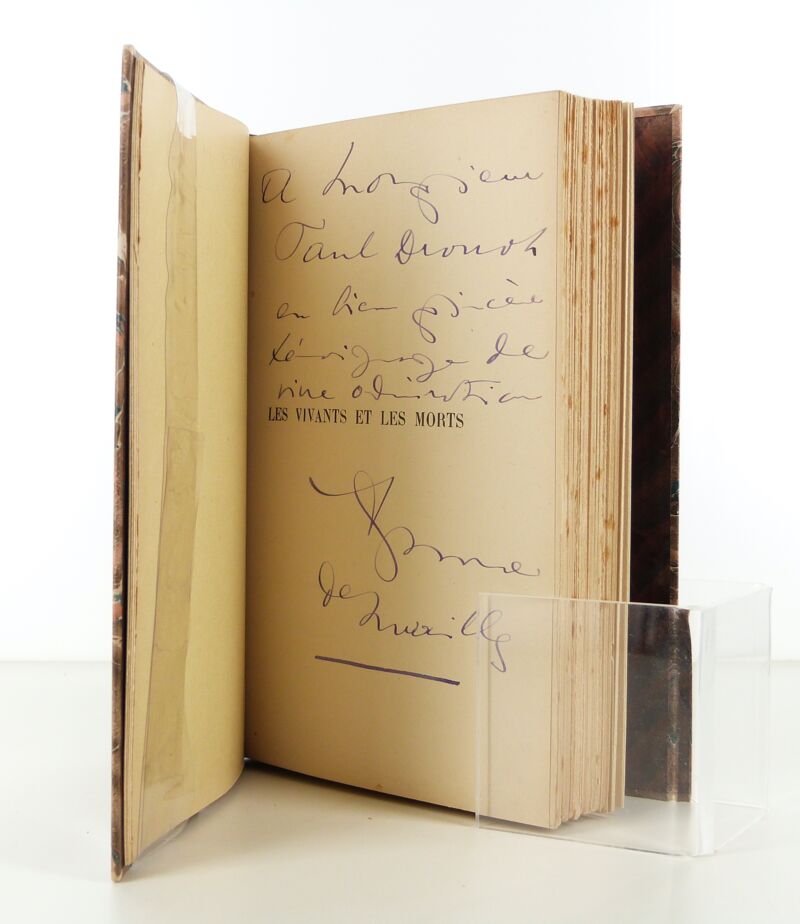 A Monsieur
Paul Drouot
en bien sincère
témoignage de
vive admiration
LES VIVANTS ET LES MORTS
Anna
de Noailles